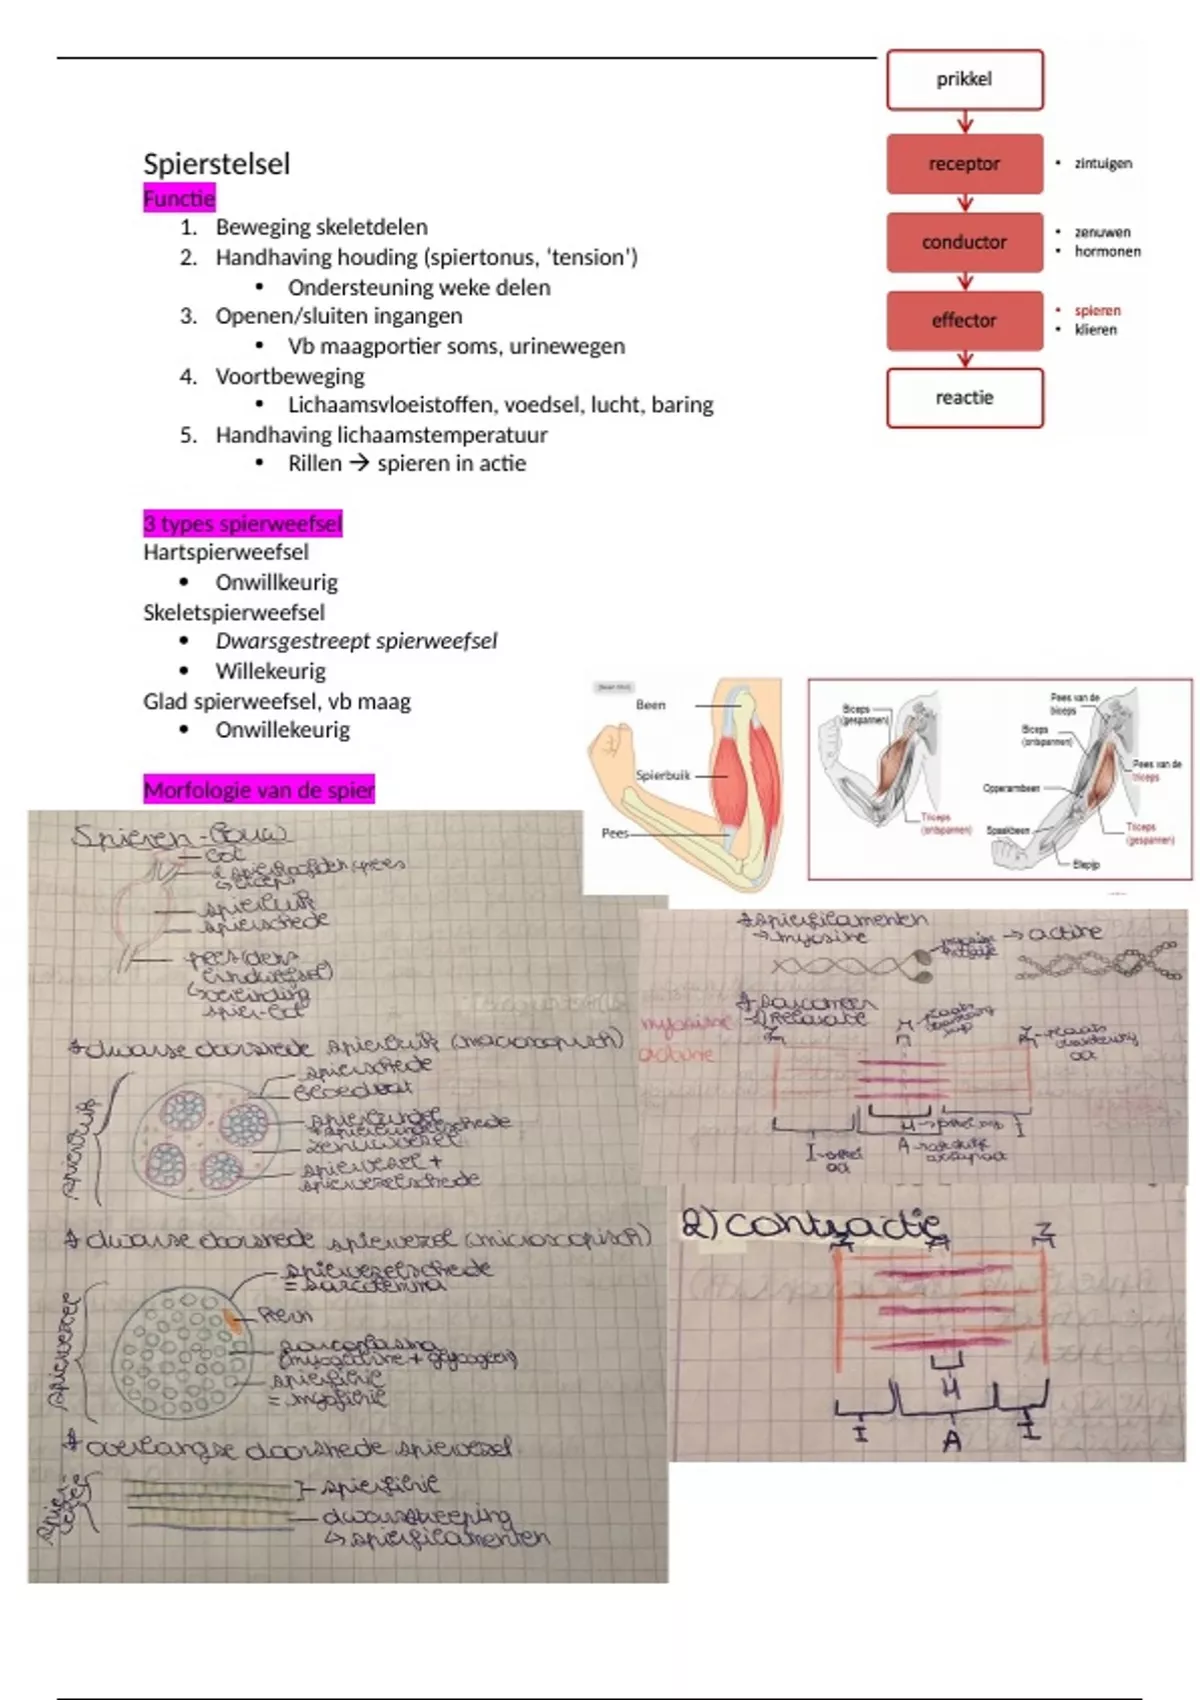 prikkel
receptor
• zintuigen
conductor
• zenuwen
• hormonen
effector
• spieren
• klieren
reactie
Spierstelsel
Functie
1. Beweging skeletdelen
2. Handhaving houding (spiertonus, 'tension')
• Ondersteuning weke delen
3. Openen/sluiten ingangen
• Vb maagportier soms, urinewegen
4. Voortbeweging
• Lichaamsvloeistoffen, voedsel, lucht, baring
5. Handhaving lichaamstemperatuur
• Rillen → spieren in actie
3 types spierweefsel
Hartspierweefsel
• Onwillkeurig
Skeletspierweefsel
• Dwarsgestreept spierweefsel
• Willekeurig
Glad spierweefsel, vb maag
• Onwillekeurig
Morfologie van de spier
Been
Spierbuik
Pees
Biceps
(gespannen)
Triceps
(ontspannen)
Pees van de
biceps
Biceps
(ontspannen)
Pees van de
triceps
Opperarmbeen
Spaakbeen
Triceps
(gespannen)
Ellepijp
Spieren-bouw
bot
spierbuik
spierschede
(bindweefsel)
↳ verbinding
spier-bot
* dwarse doorsnede spierbuik (macroscopisch)
spierbuik
spierschede
bloedvat
spierbundel
+ spierbundelschede
zenuwvezel
spiervezel +
spiervezelschede
* dwarse doorsnede spiervezel (microscopisch)
spiervezel
spiervezelschede
= sarcolemma
kern
sarcoplasma
(myoglobine + glycogeen)
spierfibril
= myofibril
* overlangse doorsnede spiervezel
spier-
vezel
spierfibril
dwarsstreeping
↳ spierfilamenten
* spierfilamenten
→ myosine
→ actine
* Sarcomeer
1) Relaxatie
myosine
actine
Z
M
Z
H
I
A
I
2) contractie
Z
M
Z
H
I
A
I